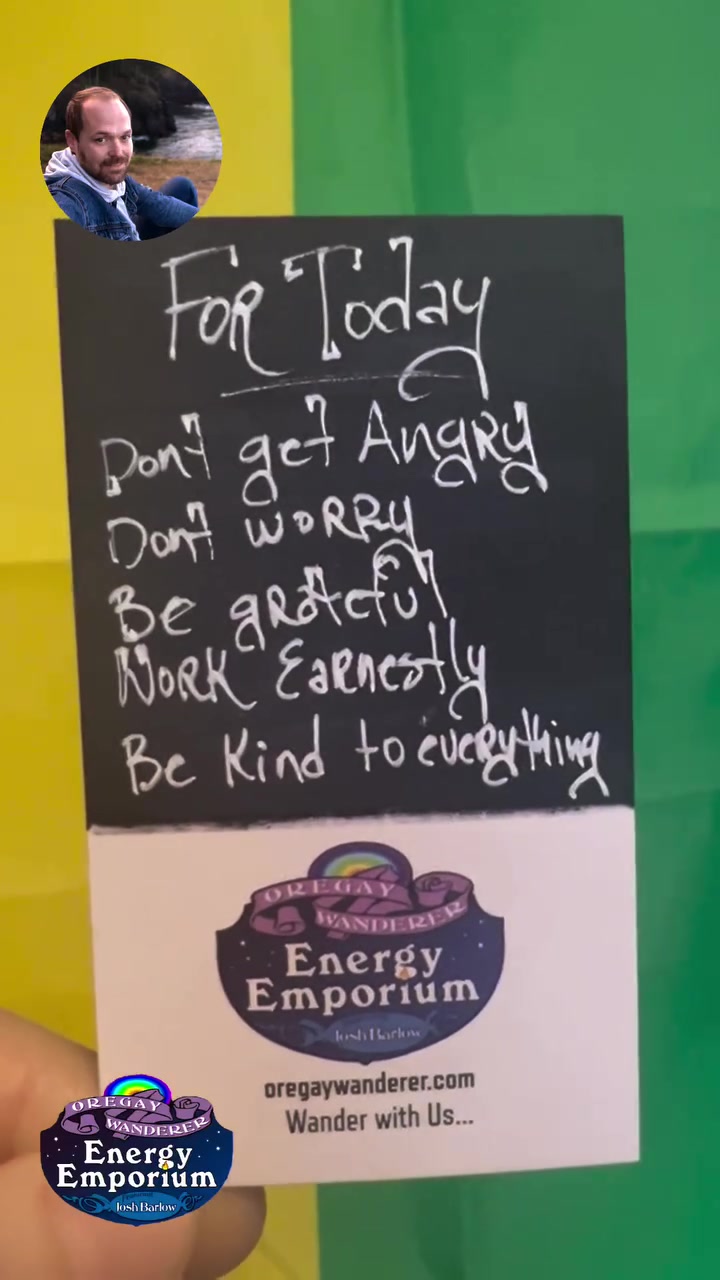 For Today
Don't get Angry
Don't worry
Be grateful
Work Earnestly
Be Kind to everything
OREGAY
WANDERER
Energy
Emporium
Josh Barlow
oregaywanderer.com
Wander with Us...
OREGAY
WANDERER
Energy
Emporium
Josh Barlow